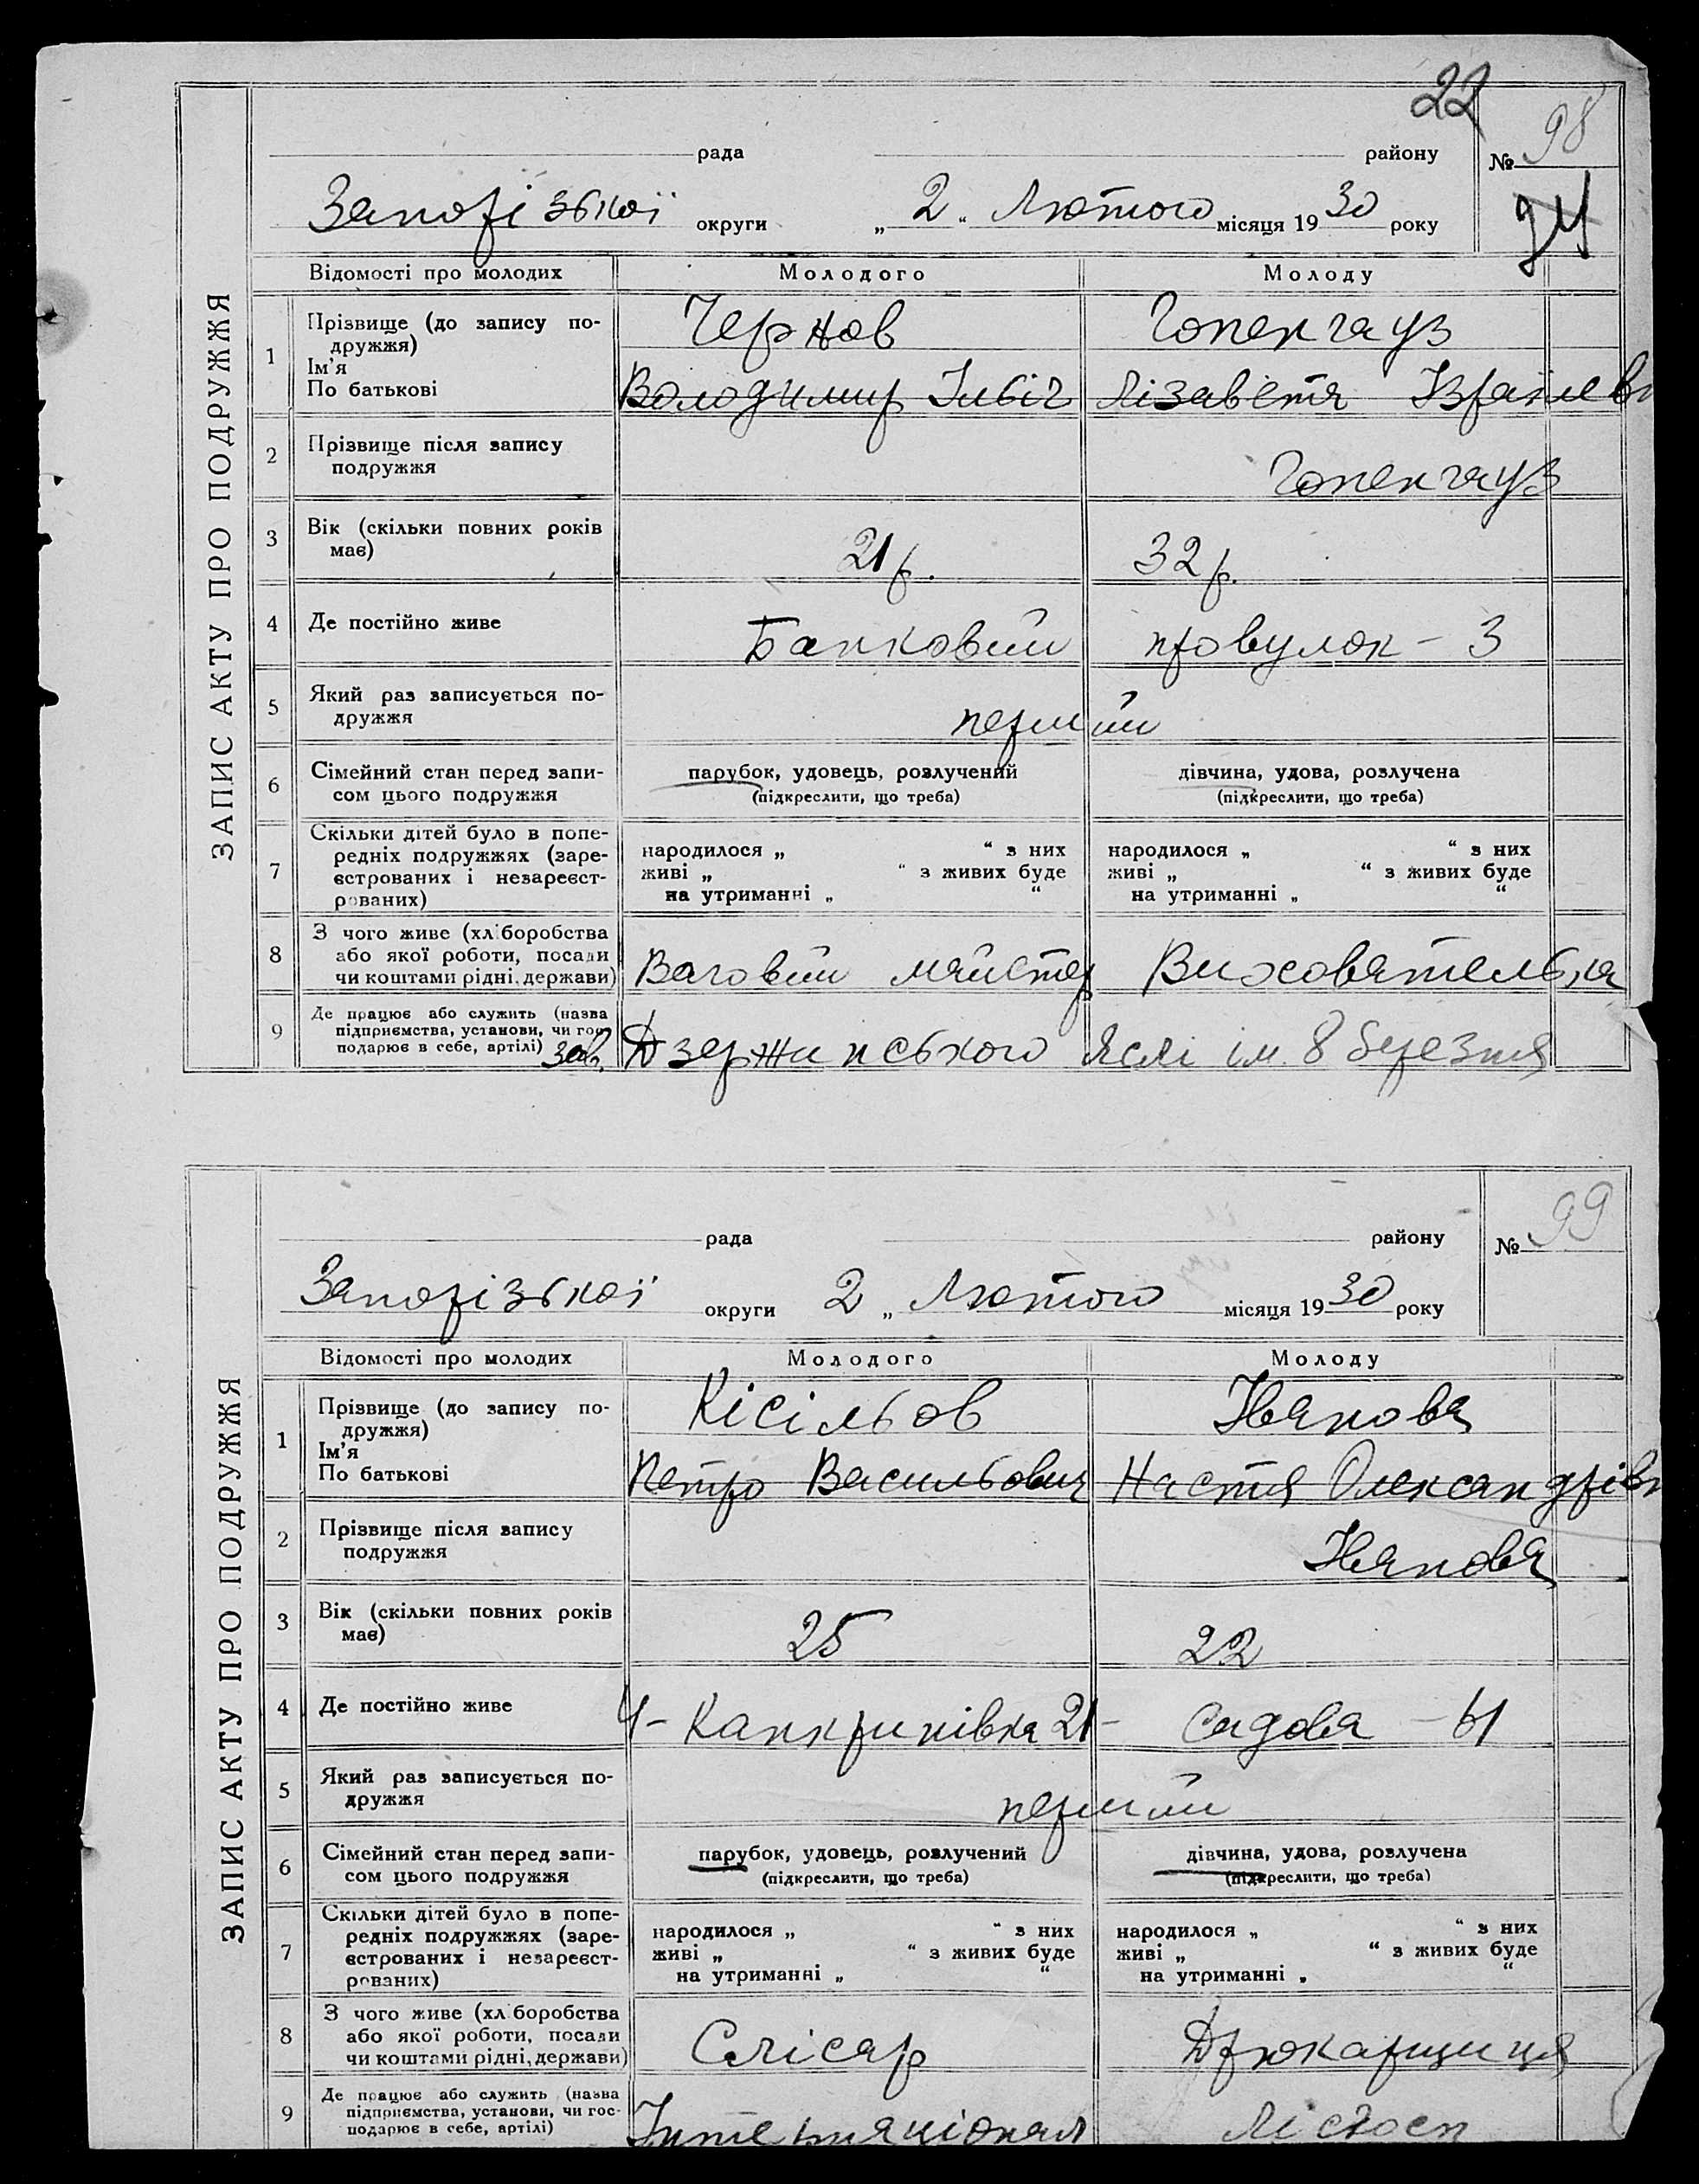 22
рада району № 98
Запорізької округи „ 2 “ Лютого місяця 19 30 року
24
ЗАПИС АКТУ ПРО ПОДРУЖЖЯ
Відомості про молодих Молодого Молоду
1 Прізвище (до запису по- Чернов Гопенгауз
дружжя)
Ім'я
По батькові Володимир Ільіч Лізавета Ізраілев
2 Прізвище після запису
подружжя Гопенгауз
3 Вік (скільки повних років
має) 21 р. 32 р.
4 Де постійно живе Банковий провулок – 3
5 Який раз записується по-
дружжя перший
6 Сімейний стан перед запи- парубок, удовець, розлучений дівчина, удова, розлучена
сом цього подружжя (підкреслити, що треба) (підкреслити, що треба)
Скільки дітей було в попе-
редніх подружжях (заре- народилося „ “ з них народилося „ “ з них
7 єстрованих і незареєст- живі „ “ з живих буде живі „ “ з живих буде
рованих) на утриманні „ “ на утриманні „ “
З чого живе (хліборобства
8 або якої роботи, посади
чи коштами рідні, держави) Ваговий майстер Вихователька
Де працює або служить (назва
9 підприємства, установи, чи гос-
подарює в себе, артілі) зав. Дзержинського Яслі ім. 8 березня
рада району № 99
Запорізької округи 2 „ Лютого місяця 19 30 року
ЗАПИС АКТУ ПРО ПОДРУЖЖЯ
Відомості про молодих Молодого Молоду
1 Прізвище (до запису по- Кісільов Іванова
дружжя)
Ім'я
По батькові Петро Васильович Настя Олександрівн
2 Прізвище після запису
подружжя Іванова
3 Вік (скільки повних років
має) 25 22
4 Де постійно живе Канкринівка 21 – Садова – 61
5 Який раз записується по-
дружжя перший
6 Сімейний стан перед запи- парубок, удовець, розлучений дівчина, удова, розлучена
сом цього подружжя (підкреслити, що треба) (підкреслити, що треба)
Скільки дітей було в попе-
редніх подружжях (заре- народилося „ “ з них народилося „ “ з них
7 єстрованих і незареєст- живі „ “ з живих буде живі „ “ з живих буде
рованих) на утриманні „ “ на утриманні „ “
З чого живе (хліборобства
8 або якої роботи, посади Слісар Друкарщиця
чи коштами рідні, держави)
Де працює або служить (назва
9 підприємства, установи, чи гос-
подарює в себе, артілі) Інтернаціонал